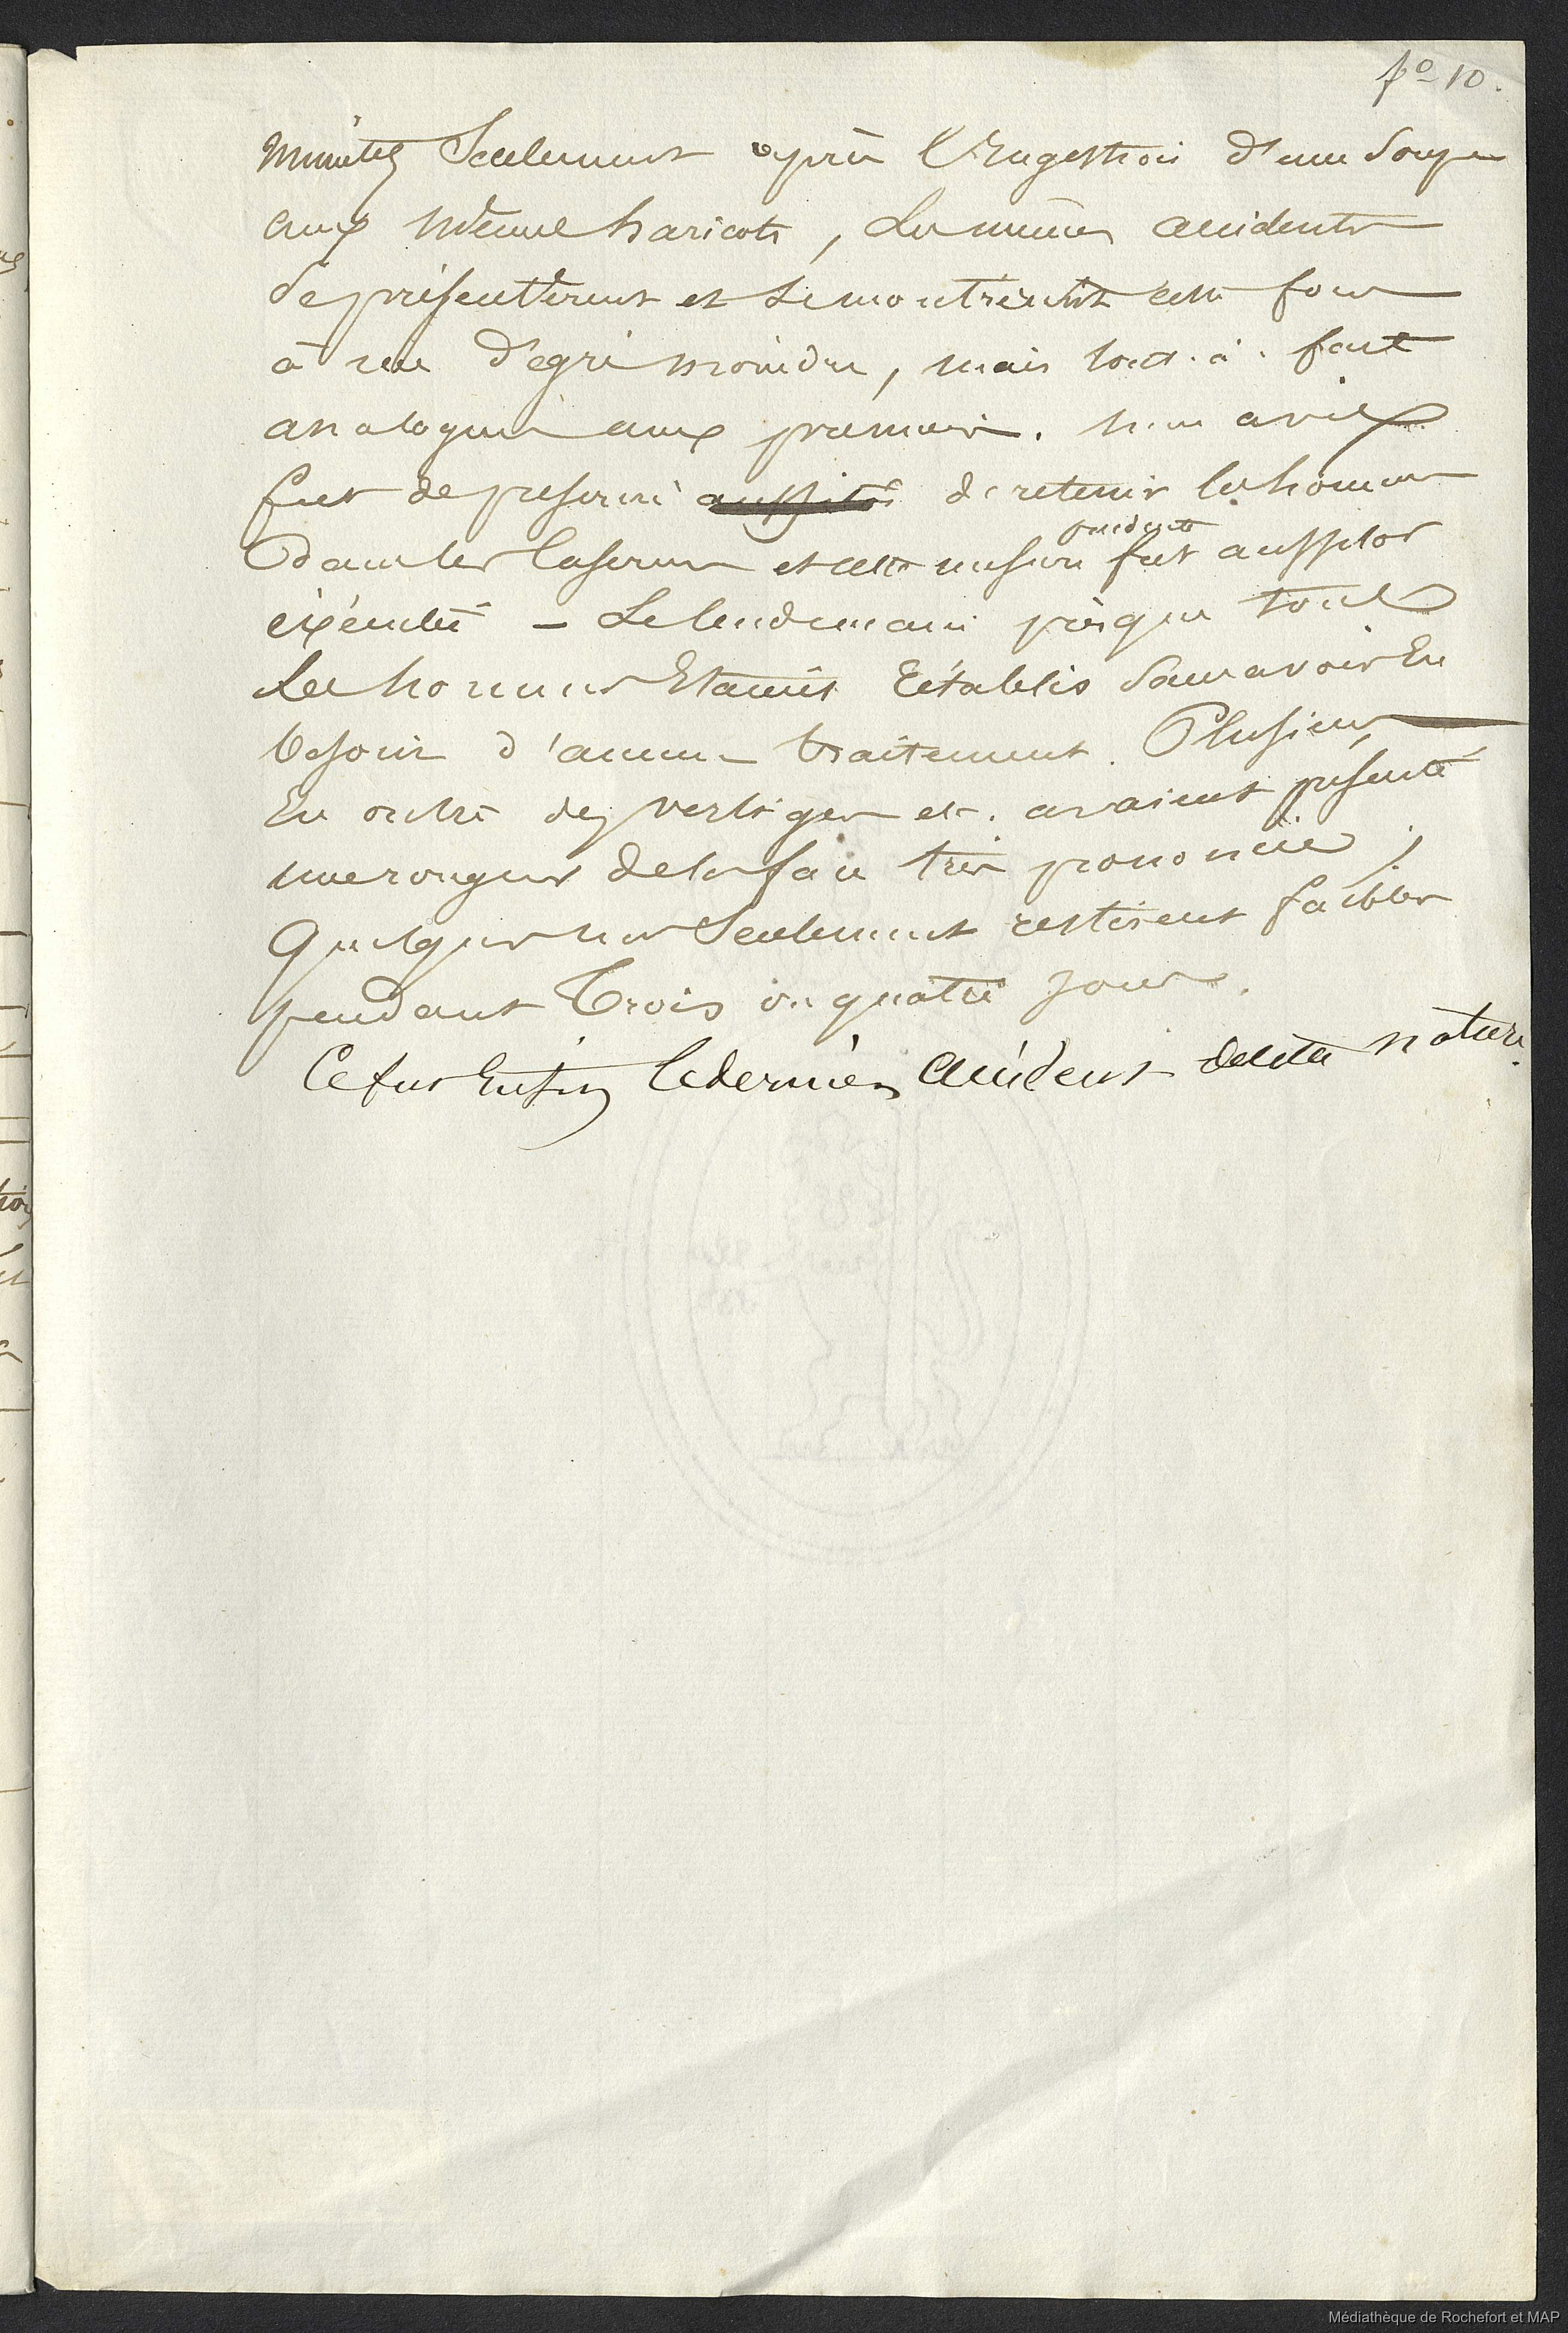 fo 10.
minutes Seulement après l'Ingestion d'une Soupe
aux même haricots, les mêmes accidents
Se présentèrent et se montrèrent cette fois
à un dégré moindre, mais tout-à-fait
analogues aux premiers. mon avis
fut de prescrire aussitôt de retenir les hommes
prudente
dans les casernes et cette mesure fut aussitôt
exécutée – Le lendemain presque tous
Les hommes Etaient Rétablis Sans avoir Eu
besoin d'aucun traitement. Plusieurs
En outre des vertiges etc. avaient présenté
une rougeur de la face très prononcée ;
Quelques uns Seulement restèrent faibles
pendant Trois ou quatre jours.
Ce fut Enfin le dernier Accident de cette nature.
Médiathèque de Rochefort et MAP